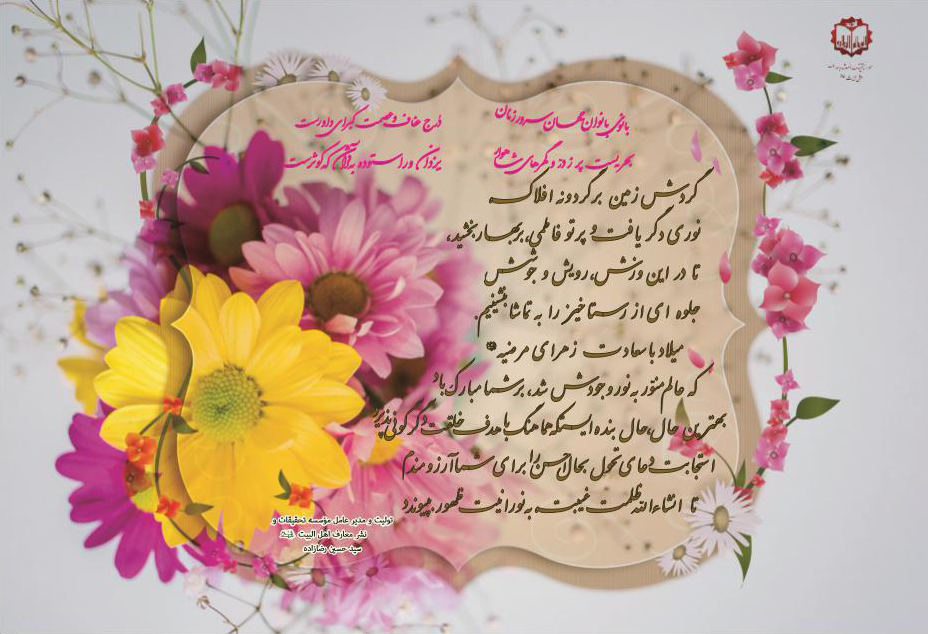 بانوی بانوان جهان سرور زنان
دُرج عفاف و عصمت کبرای داورست
بحریست پر ز دُرّ و گهرهای شاهوار
یزدان ورا ستوده به قرآن که کوثرست
گردش زمین بر گردونه افلاک
نوری دگر یافت و پرتو فاطمی، بر بهار بخشید،
تا در این وزش، رویش و جوشش
جلوه ای از رستاخیز را به تماشا بنشینیم.
میلاد با سعادت زهرای مرضیه
که عالم منوّر به نور وجودش شد، بر شما مبارک باد
بهترین حال، حال بنده ایستکه هماهنگ با هدف خلقت دگرگونی پذیرد
استجابت دعای تحول بحال احسن را برای شما آرزومندم
تا انشاءالله ظلمت غیبت به نورانیت ظهور بپیوندد
تولیت و مدیر عامل مؤسسه تحقیقات و
نشر معارف اهل البیت
سید حسین رضازاده